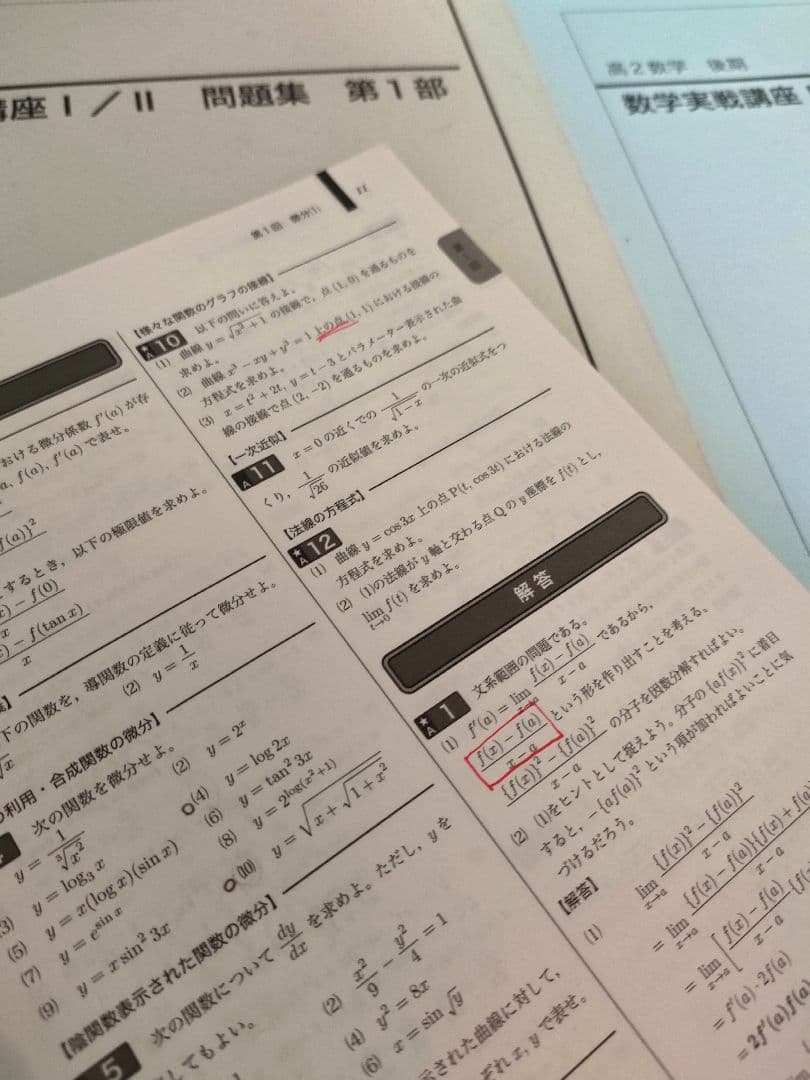 講座Ⅰ／Ⅱ 問題集 第1部
高2数学 後期
数学実戦講座
第1回 微分(1)
11
【様々な関数のグラフの接線】
★A 10 以下の問いに答えよ。
(1) 曲線 y = √(x³+1) の接線で，点(1, 0)を通るものを
求めよ。
(2) 曲線 x³ − xy + y³ = 1 上の点(1, 1)における接線の
方程式を求めよ。
(3) x = t² + 2t, y = t − 3 とパラメーター表示された曲
線の接線で点(2, −2)を通るものを求めよ。
【一次近似】
A 11 x = 0 の近くでの 1/√(1−x) の一次の近似式をつ
くり， 1/√26 の近似値を求めよ。
【法線の方程式】
★A 12
(1) 曲線 y = cos3x 上の点 P(t, cos3t) における法線の
方程式を求めよ。
(2) (1)の法線が y 軸と交わる点 Q の y 座標を f(t) とし，
lim t→0 f(t) を求めよ。
解答
★A 1 文系範囲の問題である。
(1) f′(a) = lim x→a (f(x) − f(a))/(x − a) であるから，
(f(x) − f(a))/(x − a) という形を作り出すことを考える。
({f(x)}² − {f(a)}²)/(x − a) の分子を因数分解すればよい。
(2) (1)をヒントとして捉えよう。分子の {af(x)}² に着目
すると，−{af(a)}² という項が加わればよいことに気
づけるだろう。
【解答】
(1) lim x→a ({f(x)}² − {f(a)}²)/(x − a)
= lim x→a {f(x) − f(a)}{f(x) + f(a)
x − a
= lim x→a [ (f(x) − f(a))/(x − a) {f(x)
= f′(a)・2f(a)
= 2f′(a)f(a)
おける微分係数 f′(a) が存
a, f(a), f′(a) で表せ。
f(a)}²
するとき，以下の極限値を求めよ。
) − f(0)
x
) − f(tan x)
x
下の関数を，導関数の定義に従って微分せよ。
√x
(2) y = 1/x
の利用・合成関数の微分】
次の関数を微分せよ。
y = 1/∛(x²)
(2) y = 2ˣ
(3) y = log₃ x
(4) y = log 2x
(5) y = x(log x)(sin x)
(6) y = tan² 3x
(7) y = e^(sin x)
(8) y = 2^(log(x²+1))
(9) y = x sin² 3x
(10) y = √(x + √(1 + x²))
【陰関数表示された関数の微分】
5 次の関数について dy/dx を求めよ。ただし，y を
してもよい。
(2) x²/9 − y²/4 = 1
(4) y² = 8x
(6) x = sin √y
示された曲線に対して，
ぞれ x, y で表せ。